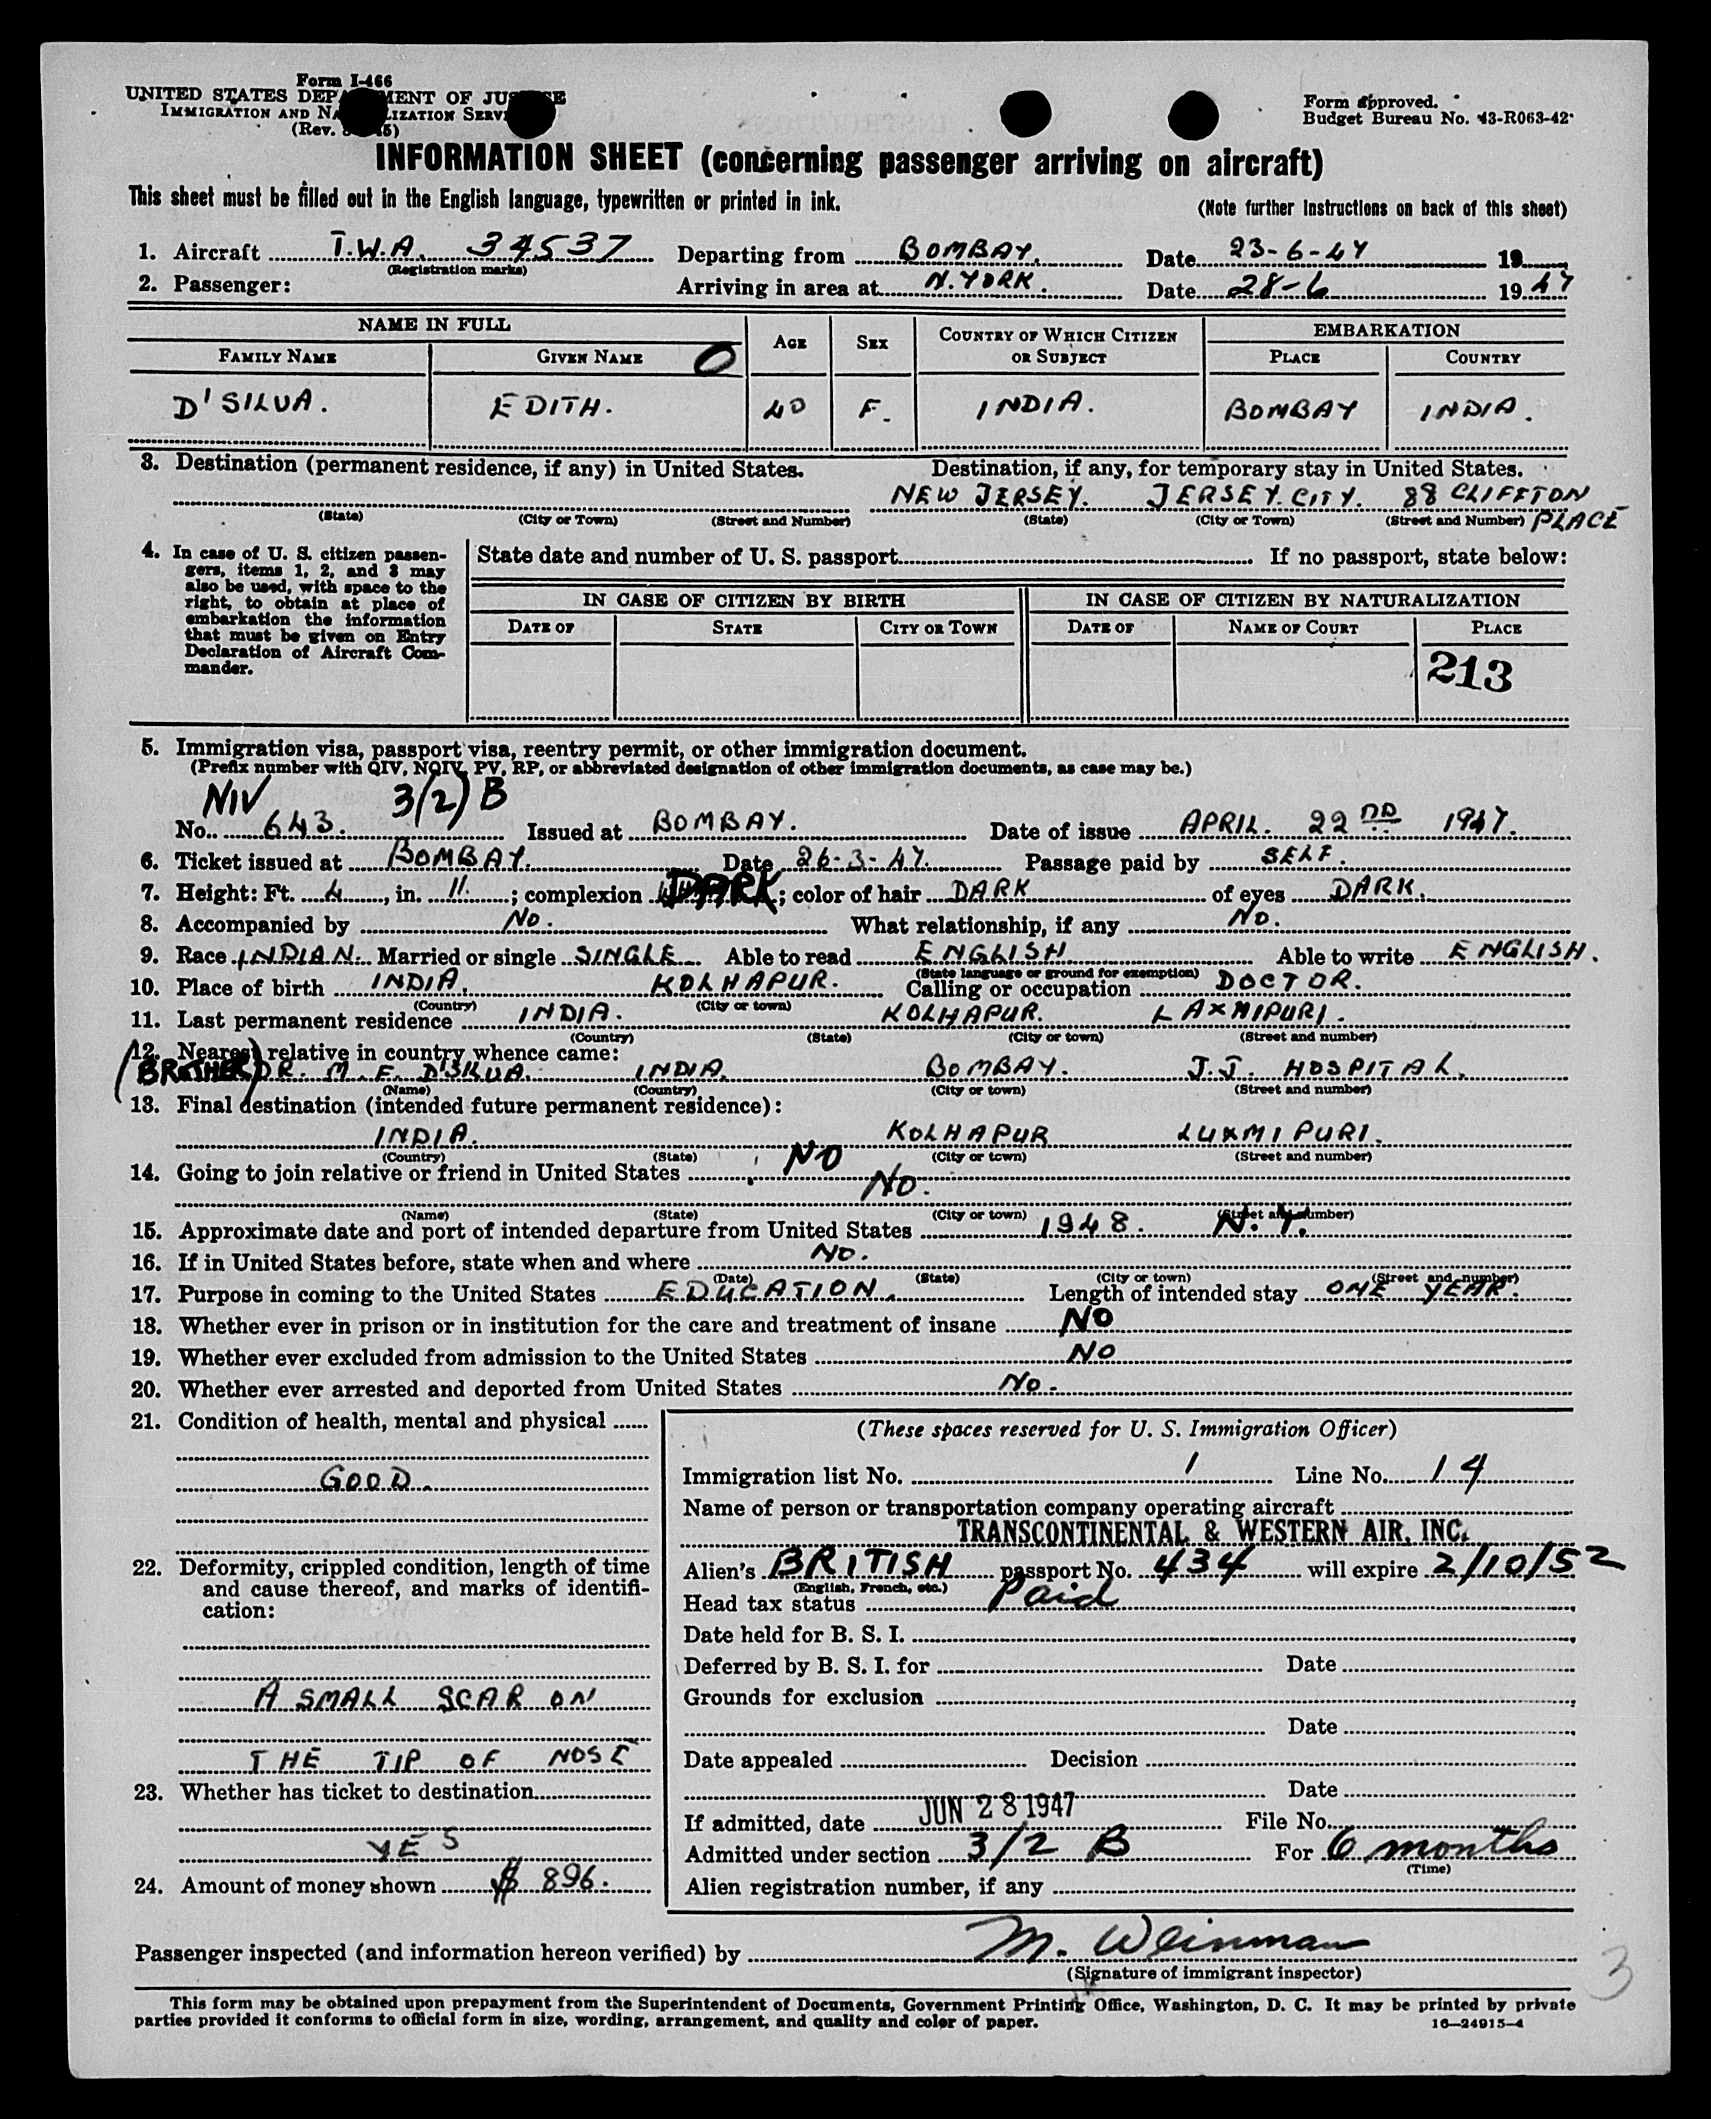 Form I-466
UNITED STATES DEPARTMENT OF JUSTICE
IMMIGRATION AND NATURALIZATION SERVICE
(Rev. 5)
Form approved.
Budget Bureau No. 43-R063-42
INFORMATION SHEET (concerning passenger arriving on aircraft)
This sheet must be filled out in the English language, typewritten or printed in ink.
(Note further instructions on back of this sheet)
1. Aircraft T.W.A. 34537 Departing from BOMBAY. Date 23-6-47 19
(Registration marks)
2. Passenger: Arriving in area at N. YORK. Date 28-6 1947
NAME IN FULL AGE SEX COUNTRY OF WHICH CITIZEN OR SUBJECT EMBARKATION
FAMILY NAME GIVEN NAME O PLACE COUNTRY
D'SILVA. EDITH. 40 F. INDIA. BOMBAY INDIA.
3. Destination (permanent residence, if any) in United States. Destination, if any, for temporary stay in United States.
NEW JERSEY. JERSEY. CITY. 88 CLIFFTON PLACE
(State) (City or Town) (Street and Number) (State) (City or Town) (Street and Number)
4. In case of U. S. citizen passen-
gers, items 1, 2, and 3 may
also be used, with space to the
right, to obtain at place of
embarkation the information
that must be given on Entry
Declaration of Aircraft Com-
mander.
State date and number of U. S. passport If no passport, state below:
IN CASE OF CITIZEN BY BIRTH IN CASE OF CITIZEN BY NATURALIZATION
DATE OF STATE CITY OR TOWN DATE OF NAME OF COURT PLACE
213
5. Immigration visa, passport visa, reentry permit, or other immigration document.
(Prefix number with QIV, NQIV, PV, RP, or abbreviated designation of other immigration documents, as case may be.)
NIV 3/(2) B
No. 643. Issued at BOMBAY. Date of issue APRIL. 22ND 1947.
6. Ticket issued at BOMBAY. Date 26-3-47. Passage paid by SELF.
7. Height: Ft. 4, in. 11.; complexion DARK; color of hair DARK of eyes DARK.
8. Accompanied by No. What relationship, if any No.
9. Race INDIAN. Married or single SINGLE Able to read ENGLISH Able to write ENGLISH.
(State language or ground for exemption)
10. Place of birth INDIA. KOLHAPUR. Calling or occupation DOCTOR.
(Country) (City or town)
11. Last permanent residence INDIA. KOLHAPUR. LAXMIPURI.
(Country) (State) (City or town) (Street and number)
12. Nearest relative in country whence came:
(BROTHER) DR. M. F. D'SILVA. INDIA. BOMBAY. J.J. HOSPITAL.
(Name) (Country) (City or town) (Street and number)
13. Final destination (intended future permanent residence):
INDIA. KOLHAPUR LUXMIPURI.
(Country) (State) (City or town) (Street and number)
14. Going to join relative or friend in United States NO
No.
(Name) (State) (City or town) (Street and number)
15. Approximate date and port of intended departure from United States 1948. N.Y.
16. If in United States before, state when and where No.
(Date) (State) (City or town) (Street and number)
17. Purpose in coming to the United States EDUCATION. Length of intended stay ONE YEAR.
18. Whether ever in prison or in institution for the care and treatment of insane NO
19. Whether ever excluded from admission to the United States NO
20. Whether ever arrested and deported from United States No.
21. Condition of health, mental and physical
GOOD.
22. Deformity, crippled condition, length of time
and cause thereof, and marks of identifi-
cation:
A SMALL SCAR ON
THE TIP OF NOSE
23. Whether has ticket to destination
YES
24. Amount of money shown $ 896.
(These spaces reserved for U. S. Immigration Officer)
Immigration list No. 1 Line No. 14
Name of person or transportation company operating aircraft
TRANSCONTINENTAL & WESTERN AIR, INC.
Alien's BRITISH passport No. 434 will expire 2/10/52
(English, French, etc.)
Head tax status Paid
Date held for B. S. I.
Deferred by B. S. I. for Date
Grounds for exclusion
Date
Date appealed Decision
Date
If admitted, date JUN 28 1947 File No.
Admitted under section 3/2 B For 6 months
(Time)
Alien registration number, if any
Passenger inspected (and information hereon verified) by M. Weinman
(Signature of immigrant inspector)
3
This form may be obtained upon prepayment from the Superintendent of Documents, Government Printing Office, Washington, D. C. It may be printed by private
parties provided it conforms to official form in size, wording, arrangement, and quality and color of paper.
16—24915-4